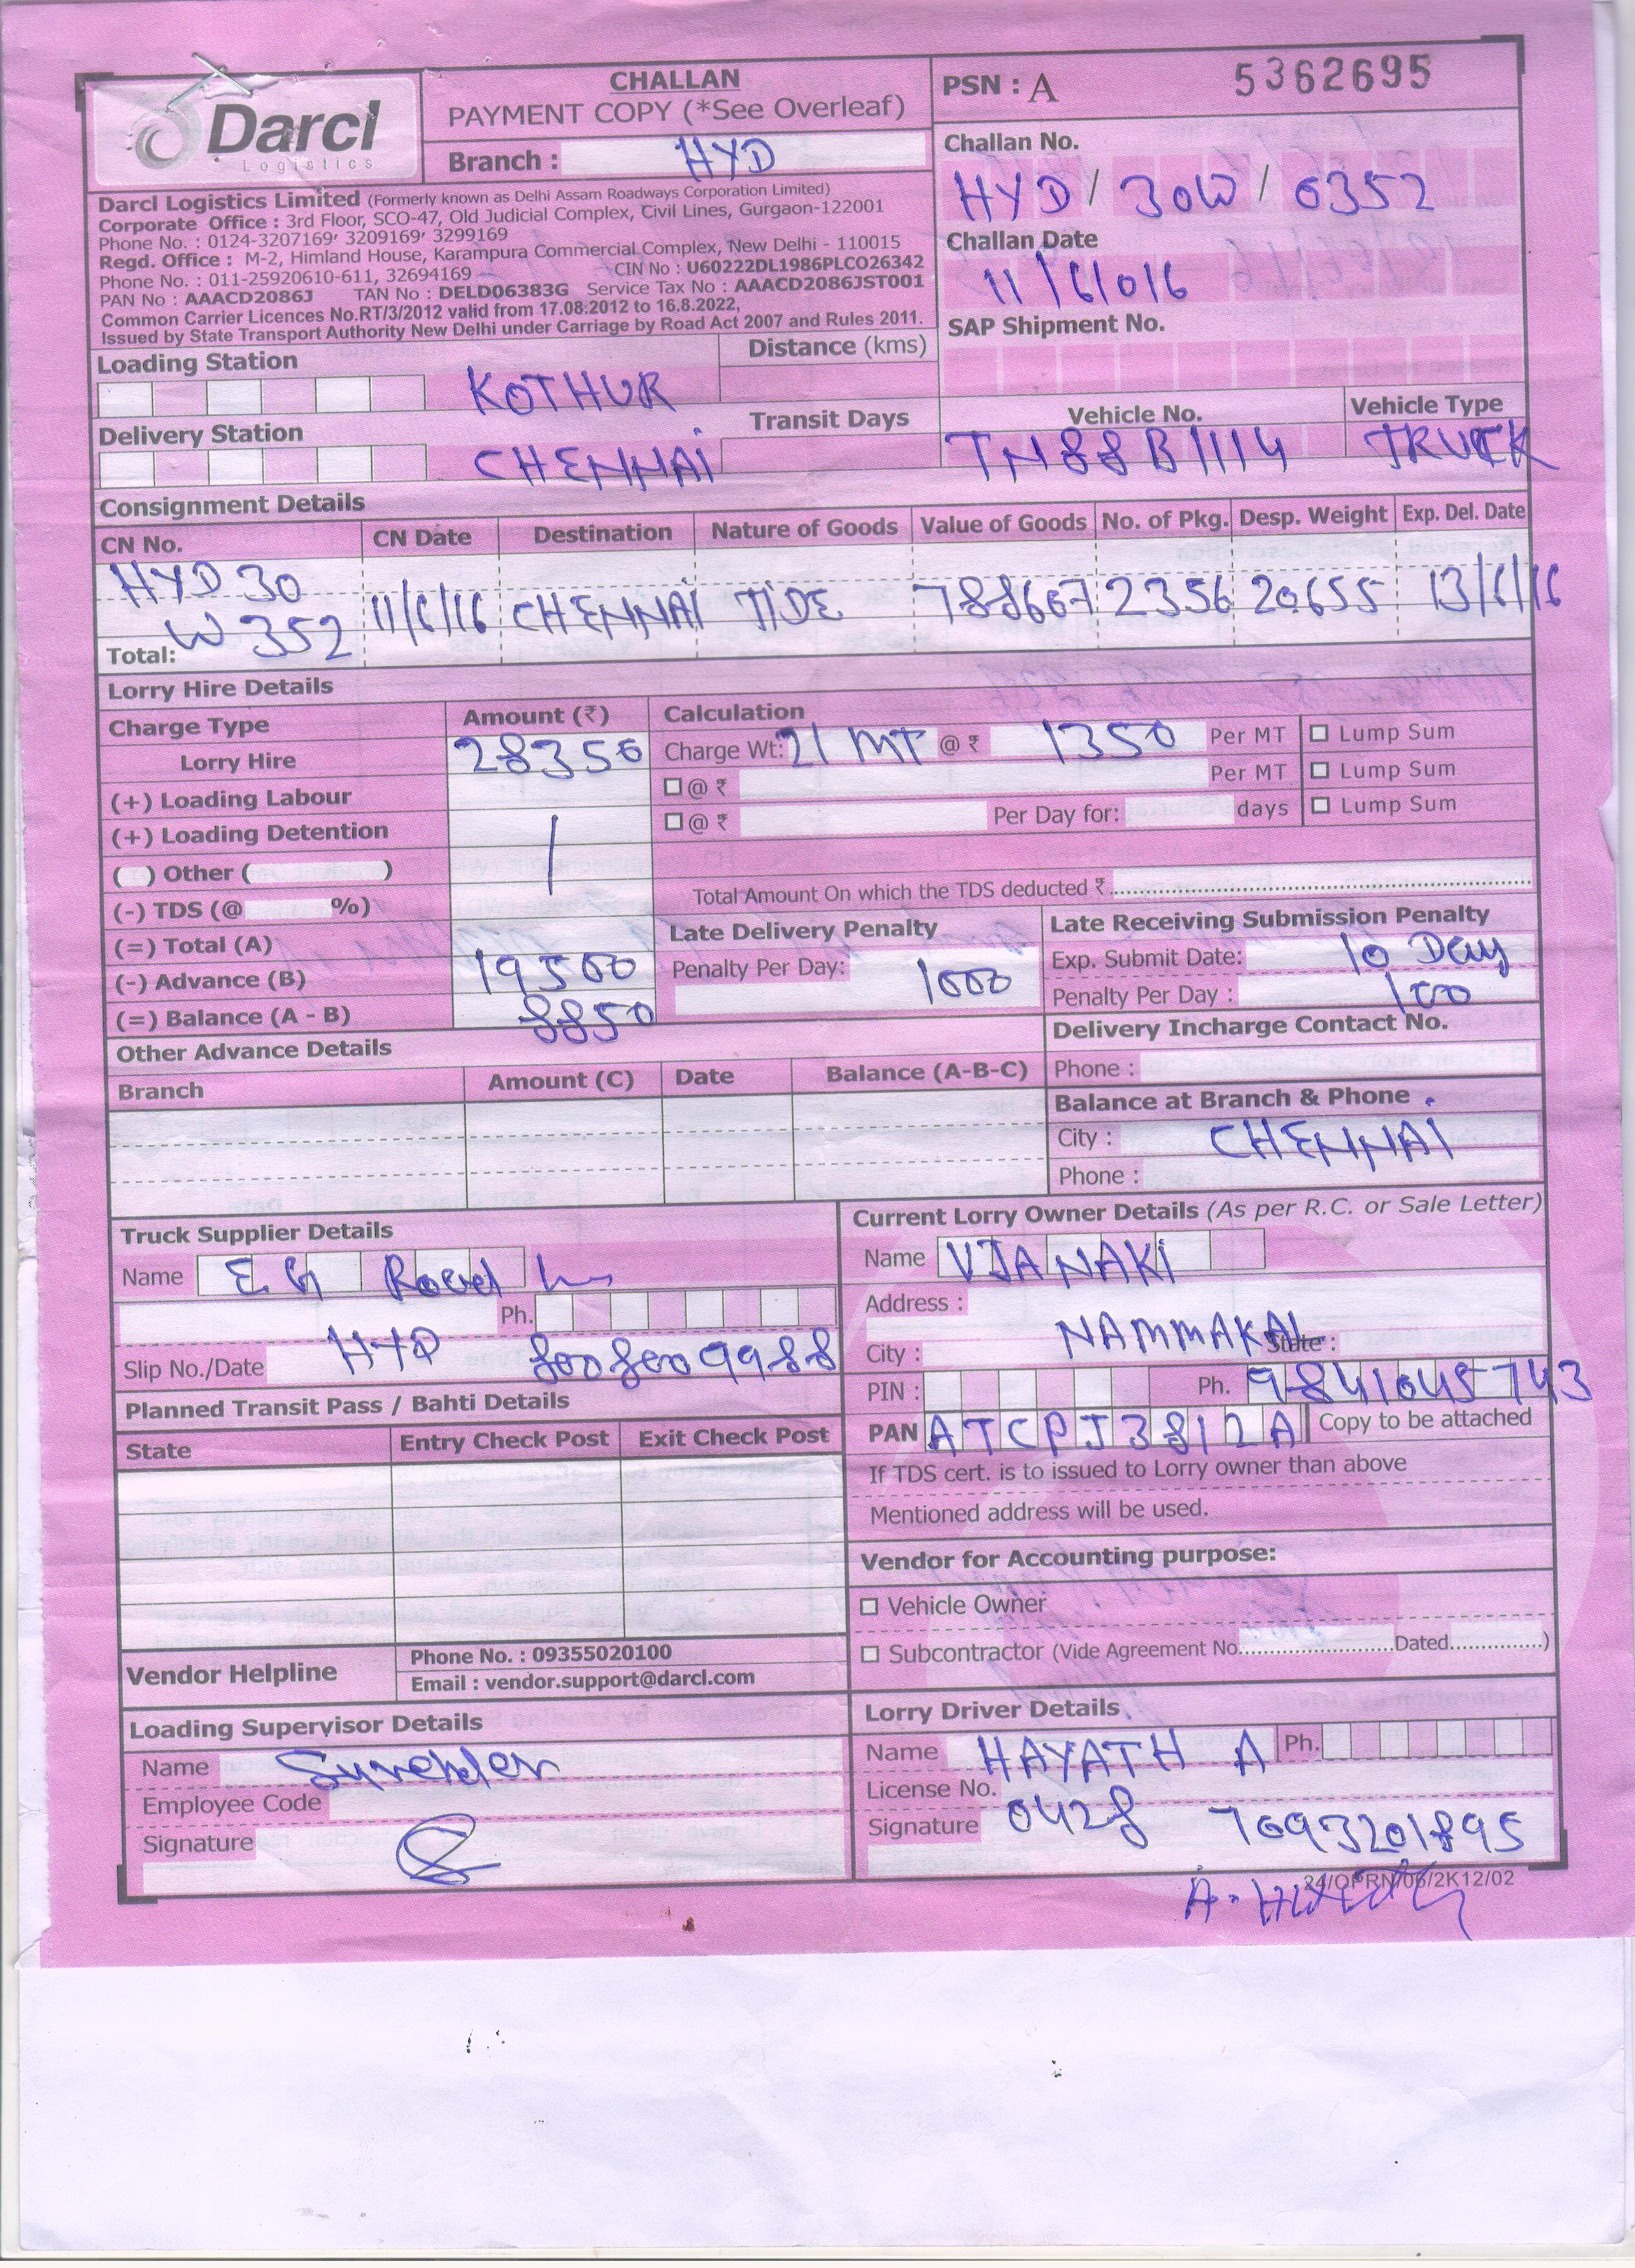 Darcl
Logistics
CHALLAN
PAYMENT COPY (*See Overleaf)
Branch : HYD
PSN : A 5362695
Challan No.
HYD / 30W / 0352
Challan Date
11/6/016
SAP Shipment No.
Darcl Logistics Limited (Formerly known as Delhi Assam Roadways Corporation Limited)
Corporate Office : 3rd Floor, SCO-47, Old Judicial Complex, Civil Lines, Gurgaon-122001
Phone No. : 0124-3207169, 3209169, 3299169
Regd. Office : M-2, Himland House, Karampura Commercial Complex, New Delhi - 110015
Phone No. : 011-25920610-611, 32694169 CIN No : U60222DL1986PLCO26342
PAN No : AAACD2086J TAN No : DELD06383G Service Tax No : AAACD2086JST001
Common Carrier Licences No.RT/3/2012 valid from 17.08.2012 to 16.8.2022,
Issued by State Transport Authority New Delhi under Carriage by Road Act 2007 and Rules 2011.
Loading Station KOTHUR
Distance (kms)
Delivery Station CHENNAI
Transit Days
Vehicle No. TN88B1114
Vehicle Type TRUCK
Consignment Details
CN No. CN Date Destination Nature of Goods Value of Goods No. of Pkg. Desp. Weight Exp. Del. Date
HYD 30
W 352 11/6/16 CHENNAI TIDE 788667 2356 20655 13/6/16
Total:
Lorry Hire Details
Charge Type Amount (₹) Calculation
Lorry Hire 28350 Charge Wt: 21 MT @ ₹ 1350 Per MT Lump Sum
(+) Loading Labour @ ₹ Per MT Lump Sum
(+) Loading Detention @ ₹ Per Day for: days Lump Sum
( ) Other ( )
(-) TDS (@ %) Total Amount On which the TDS deducted ₹
(=) Total (A)
(-) Advance (B) 19500
(=) Balance (A - B) 8850
Late Delivery Penalty
Penalty Per Day: 1000
Late Receiving Submission Penalty
Exp. Submit Date: 10 Day
Penalty Per Day : 100
Delivery Incharge Contact No.
Phone :
Other Advance Details
Branch Amount (C) Date Balance (A-B-C)
Balance at Branch & Phone
City : CHENNAI
Phone :
Truck Supplier Details
Name E.G Road
Ph.
Slip No./Date HYD 8008009988
Current Lorry Owner Details (As per R.C. or Sale Letter)
Name VJANAKI
Address :
City : NAMMAKAL State :
PIN : Ph. 9841045743
PAN ATCPJ3812A Copy to be attached
If TDS cert. is to issued to Lorry owner than above
Mentioned address will be used.
Planned Transit Pass / Bahti Details
State Entry Check Post Exit Check Post
Vendor for Accounting purpose:
Vehicle Owner
Subcontractor (Vide Agreement No. Dated )
Vendor Helpline
Phone No. : 09355020100
Email : vendor.support@darcl.com
Loading Supervisor Details
Name Surender
Employee Code
Signature
Lorry Driver Details
Name HAYATH A Ph.
License No.
Signature 0428 7093201895
24/OPRN/06/2K12/02